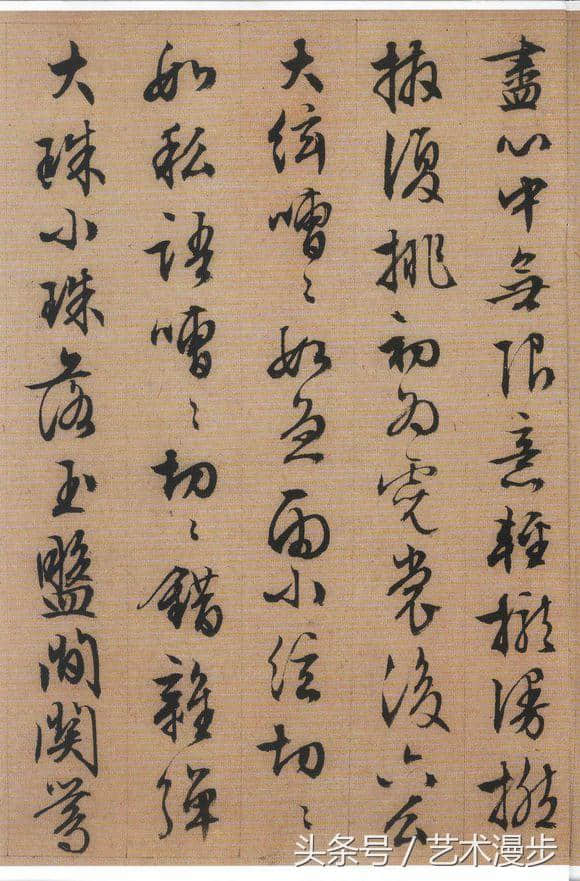 盡心中無限意輕攏漫撚
抹復挑初為霓裳後六幺
大絃嘈〻如急雨小絃切〻
如私語嘈〻切〻錯雜彈
大珠小珠落玉盤間關鶯
头条号 / 艺术漫步